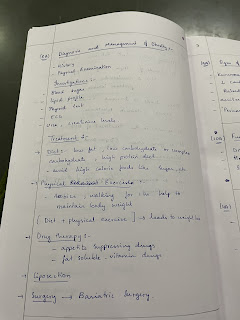 Diagnosis and Management of Obesity :-
- History
- Physical Examination
Investigations :-
- Blood sugar
- Lipid profile
- Thyroid test
- ECG
- creatinine levels
Treatment :-
→ Diet :- low fat, low carbohydrate or complex
carbohydrate, high protein diet
- avoid high calorie foods like sugar, etc
→ Physical Exercise :-
- Aerobic, walking for help to
maintain body weight
[Diet + physical exercise] → leads to weight loss
→ Drug therapy :-
- appetite suppressing drugs
- fat soluble vitamin drugs
→ Liposuction
→ Surgery → Bariatric Surgery.